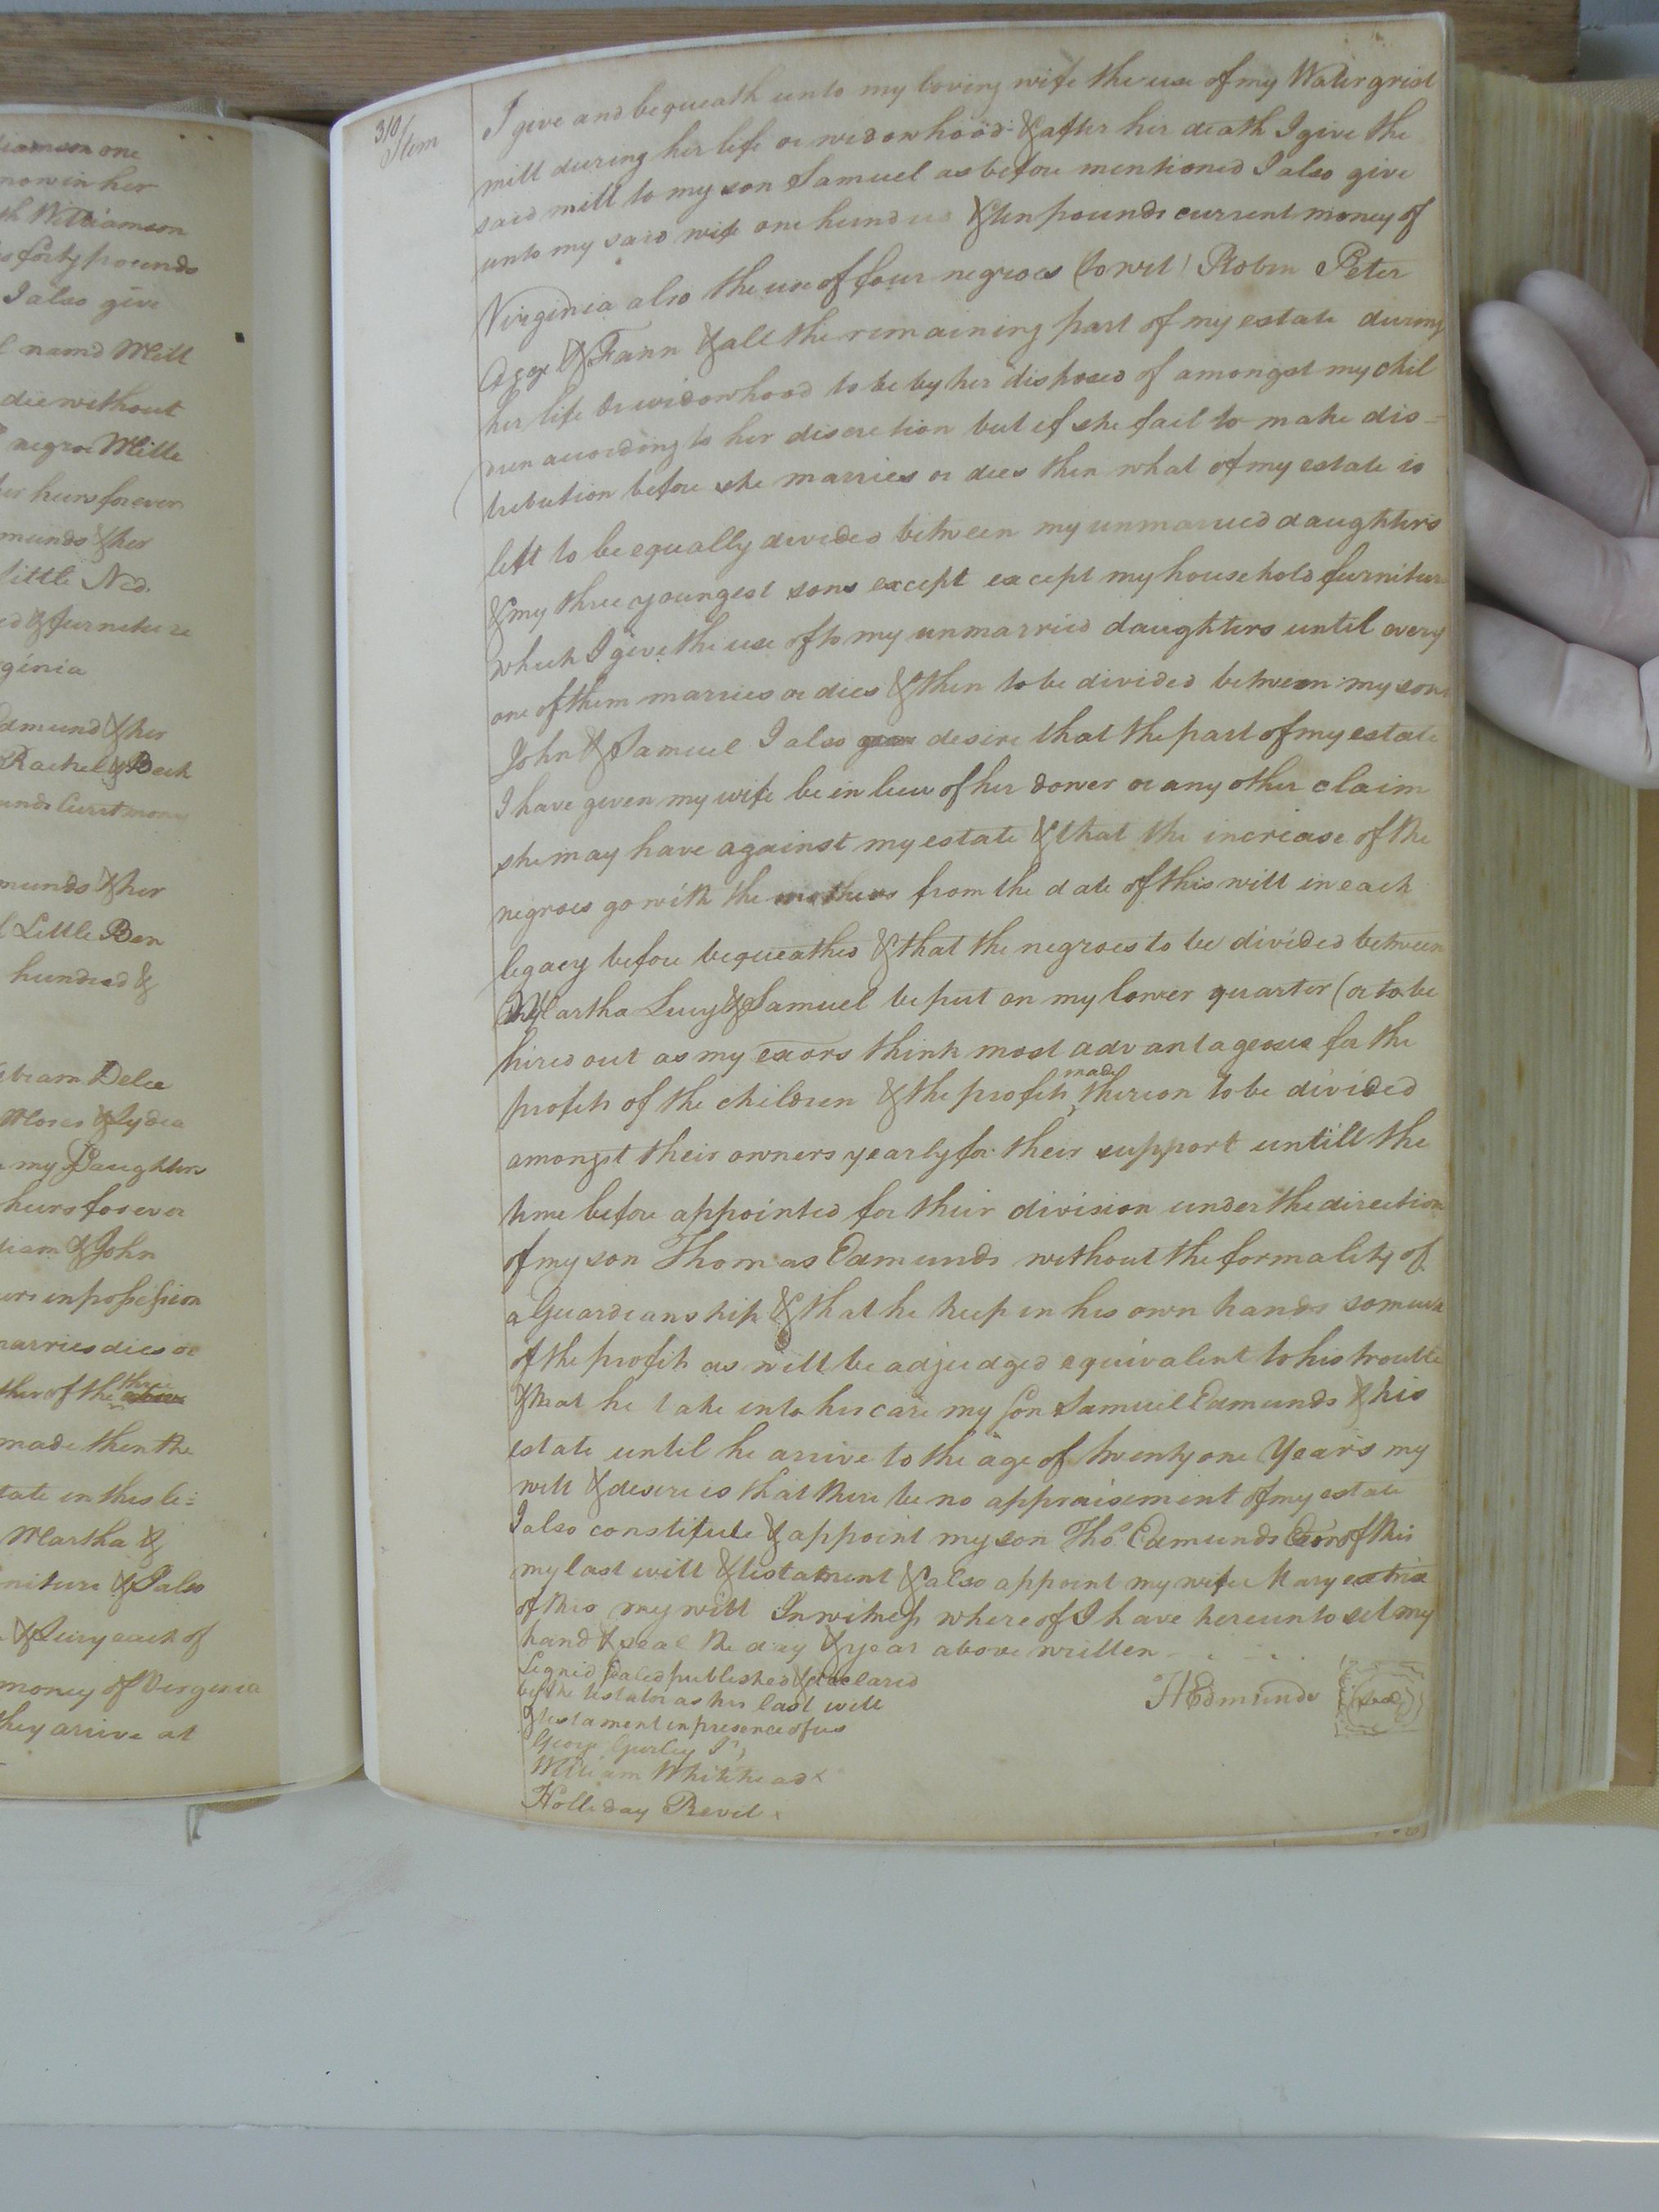 liamson one
now in her
th Williamson
forty pounds
I also give
namd Mill
die without
negroe Mille
her heirs forever
munds & her
little Ned.
ed & furneture
ginia
Edmund & her
Rachel & Beck
unds Curt mony
munds & her
Little Ben
hundred &
Abram Delce
Moses & Lydea
my Daughters
heirs forever
liam & John
urs in possession
marries dies or
ther of the three
made then the
tate in this le=
Martha &
niture & I also
& Lucy each of
money of Verginia
they arrive at
310/
Item
I give and bequeath unto my loving wife the use of my Water grist
mill during her life or widowhood & after her death I give the
said mill to my son Samuel as before mentioned I also give
unto my said wife one hundred & ten pounds current money of
Virginia also the use of four negroes (to wit) Robin Peter
& Fann & all the remaining part of my estate during
her life or widowhood to be by her disposed of amongst my chil
dren according to her discretion but if she fail to make dis=
tribution before she marries or dies then what of my estate is
left to be equally divided between my unmarried daughters
& my three youngest sons except except my household furniture
which I give the use of to my unmarried daughters until every
one of them marries or dies & then to be divided between my sons
John & Samuel I also desire that the part of my estate
I have given my wife be in lieu of her dower or any other claim
she may have against my estate & that the increase of the
negroes go with the mothers from the date of this will in each
legacy before bequeathed & that the negroes to be divided between
Martha Lucy & Samuel be put on my lower quarter (or to be
hired out as my exors think most advantageous for the
profit of the children & the profits made thereon to be divided
amongst their owners yearly for their support untill the
time before appointed for their division under the direction
of my son Thomas Edmunds without the formality of
a Guardianship & that he keep in his own hands so much
of the profits as will be adjudged equivalent to his trouble
& that he take into his care my son Samuel Edmunds & his
estate until he arrive to the age of twenty one Years my
will & desire is that there be no appraisement of my estate
I also constitute & appoint my son Tho.s Edmunds Exor of this
my last will & testatment & also appoint my wife Mary extrix
of this my will In witness whereof I have hereunto set my
hand & seal the day & year above written
Signed Sealed published & declared
by the testator as his last will
& testament in presence of us
George Gurley Jr,
William Whitehead x
Holliday Revil x
H Edmunds (seal)